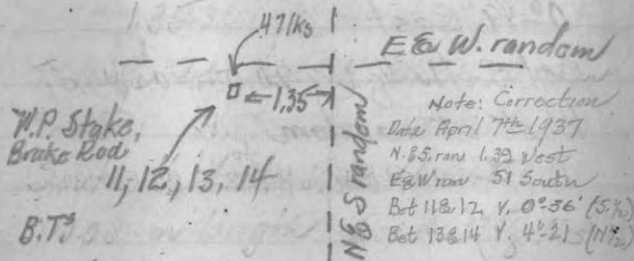 47 lks
E & W. random
1.35
N & S random
W.P. Stake,
Brake Rod
11, 12, 13, 14
B.T.s
Note: Correction
Date April 7th 1937
N. & S. ran 1.39 West
E & W ran 51 South
Bet 11 & 12 V. 0°-36' (S. 1/2)
Bet 13 & 14 V. 4°-21 (N 1/2)